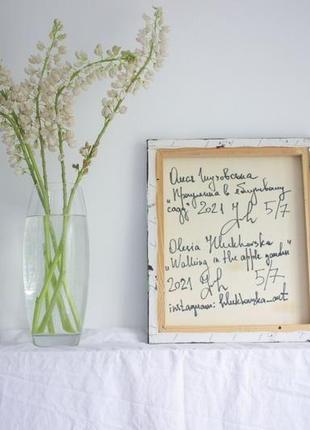 Олся Глуховська
„Прогулянка в яблуневому
саду" 2021 5/7
Olesia Hlukhovska
„Walking in the apple garden"
2021 5/7
instagram: hlukhovska_art